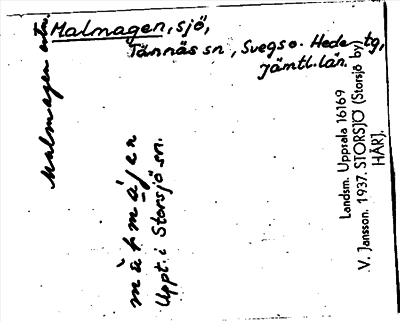 Malmagen, sjö,
Tännäs sn, Svegs o. Hede tg,
Jämtl. län.
Malmagen
Uppt. i Storsjö sn.
Landsm. Uppsala 16169
V. Jansson. 1937. STORSJÖ (Storsjö by,
HÄRJ.